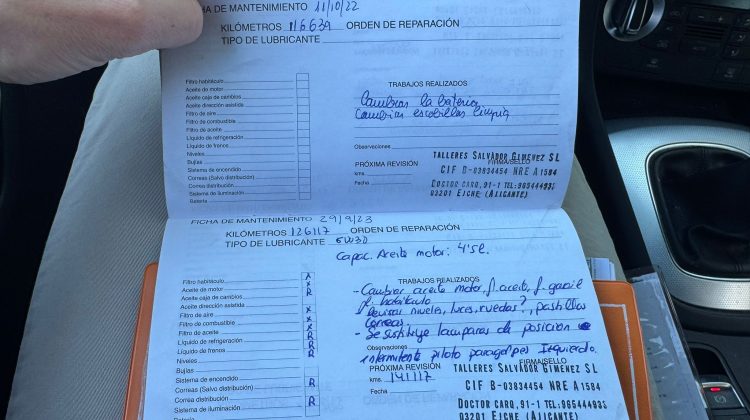 FICHA DE MANTENIMIENTO 11/10/22
KILÓMETROS 116639 ORDEN DE REPARACIÓN
TIPO DE LUBRICANTE
TRABAJOS REALIZADOS
Filtro habitáculo
Aceite de motor
Aceite caja de cambios
Aceite dirección asistida
Filtro de aire
Filtro de combustible
Filtro de aceite
Líquido de refrigeración
Líquido de frenos
Niveles
Bujías
Sistema de encendido
Correas (Salvo distribución)
Correa distribución
Sistema de iluminación
Batería
Cambiar la batería
Cambiar escobillas limpia
Observaciones
PRÓXIMA REVISIÓN
FIRMA/SELLO
kms.
Fecha
TALLERES SALVADOR GIMENEZ SL
CIF B-03834454 NRE A 1584
DOCTOR CARO, 91-1 TEL:965444935
03201 ELCHE (ALICANTE)
FICHA DE MANTENIMIENTO 29/9/23
KILÓMETROS 126117 ORDEN DE REPARACIÓN
TIPO DE LUBRICANTE 5W30
Capac. Aceite motor: 4'5L.
TRABAJOS REALIZADOS
Filtro habitáculo X
Aceite de motor X
Aceite caja de cambios R
Aceite dirección asistida
Filtro de aire X
Filtro de combustible X
Filtro de aceite X
Líquido de refrigeración R
Líquido de frenos R
Niveles R
Bujías
Sistema de encendido
Correas (Salvo distribución) R
Correa distribución
Sistema de iluminación R
Batería
- Cambiar aceite motor, f. aceite, f. gasoil
f. habitáculo
Revisar niveles, luces, ruedas?, pastillas
correas.
- Se sustituye lamparas de posicion e
Observaciones
intermitente piloto paragolpes Izquierdo.
PRÓXIMA REVISIÓN
FIRMA/SELLO
kms. 141117
Fecha
TALLERES SALVADOR GIMENEZ SL
CIF B-03834454 NRE A 1584
DOCTOR CARO, 91-1 TEL:965444935
03201 ELCHE (ALICANTE)